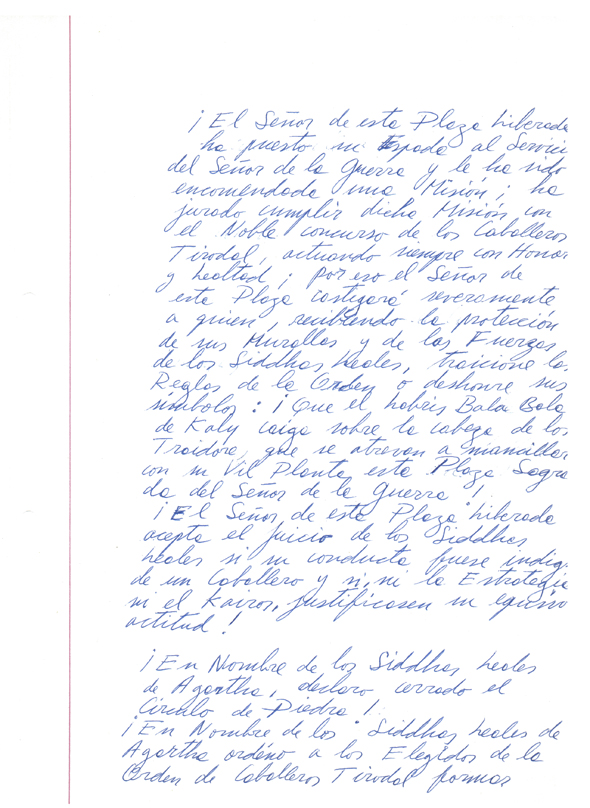 ¡El Señor de esta Plaza liberada
ha puesto su Espada al Servicio
del Señor de la Guerra y le ha sido
encomendada una Misión; ha
jurado cumplir dicha Misión con
el Noble concurso de los Caballeros
Tirodal, actuando siempre con Honor
y Lealtad; por eso el Señor de
esta Plaza castigará severamente
a quien, recibiendo la protección
de sus Murallas y de las Fuerzas
de los Siddhas Leales, traicione las
Reglas de la Orden o deshonre sus
símbolos: ¡Que el habris Bala Bala
de Kaly caiga sobre la cabeza de los
Traidore, que se atrevan a mancillar
con su Vil Planta esta Plaza Sagra
da del Señor de la Guerra!
¡El Señor de esta Plaza liberada
acepta el juicio de los Siddhas
Leales si su conducta fuese indig.
de un Caballero y si, ni la Estrategia
ni el Kairos, justificasen su
actitud!
¡En Nombre de los Siddhas Leales
de Agartha, declaro cerrado el
Círculo de Piedra!
¡En Nombre de los Siddhas Leales de
Agartha ordeno a los Elegidos de la
Orden de Caballeros Tirodal formar